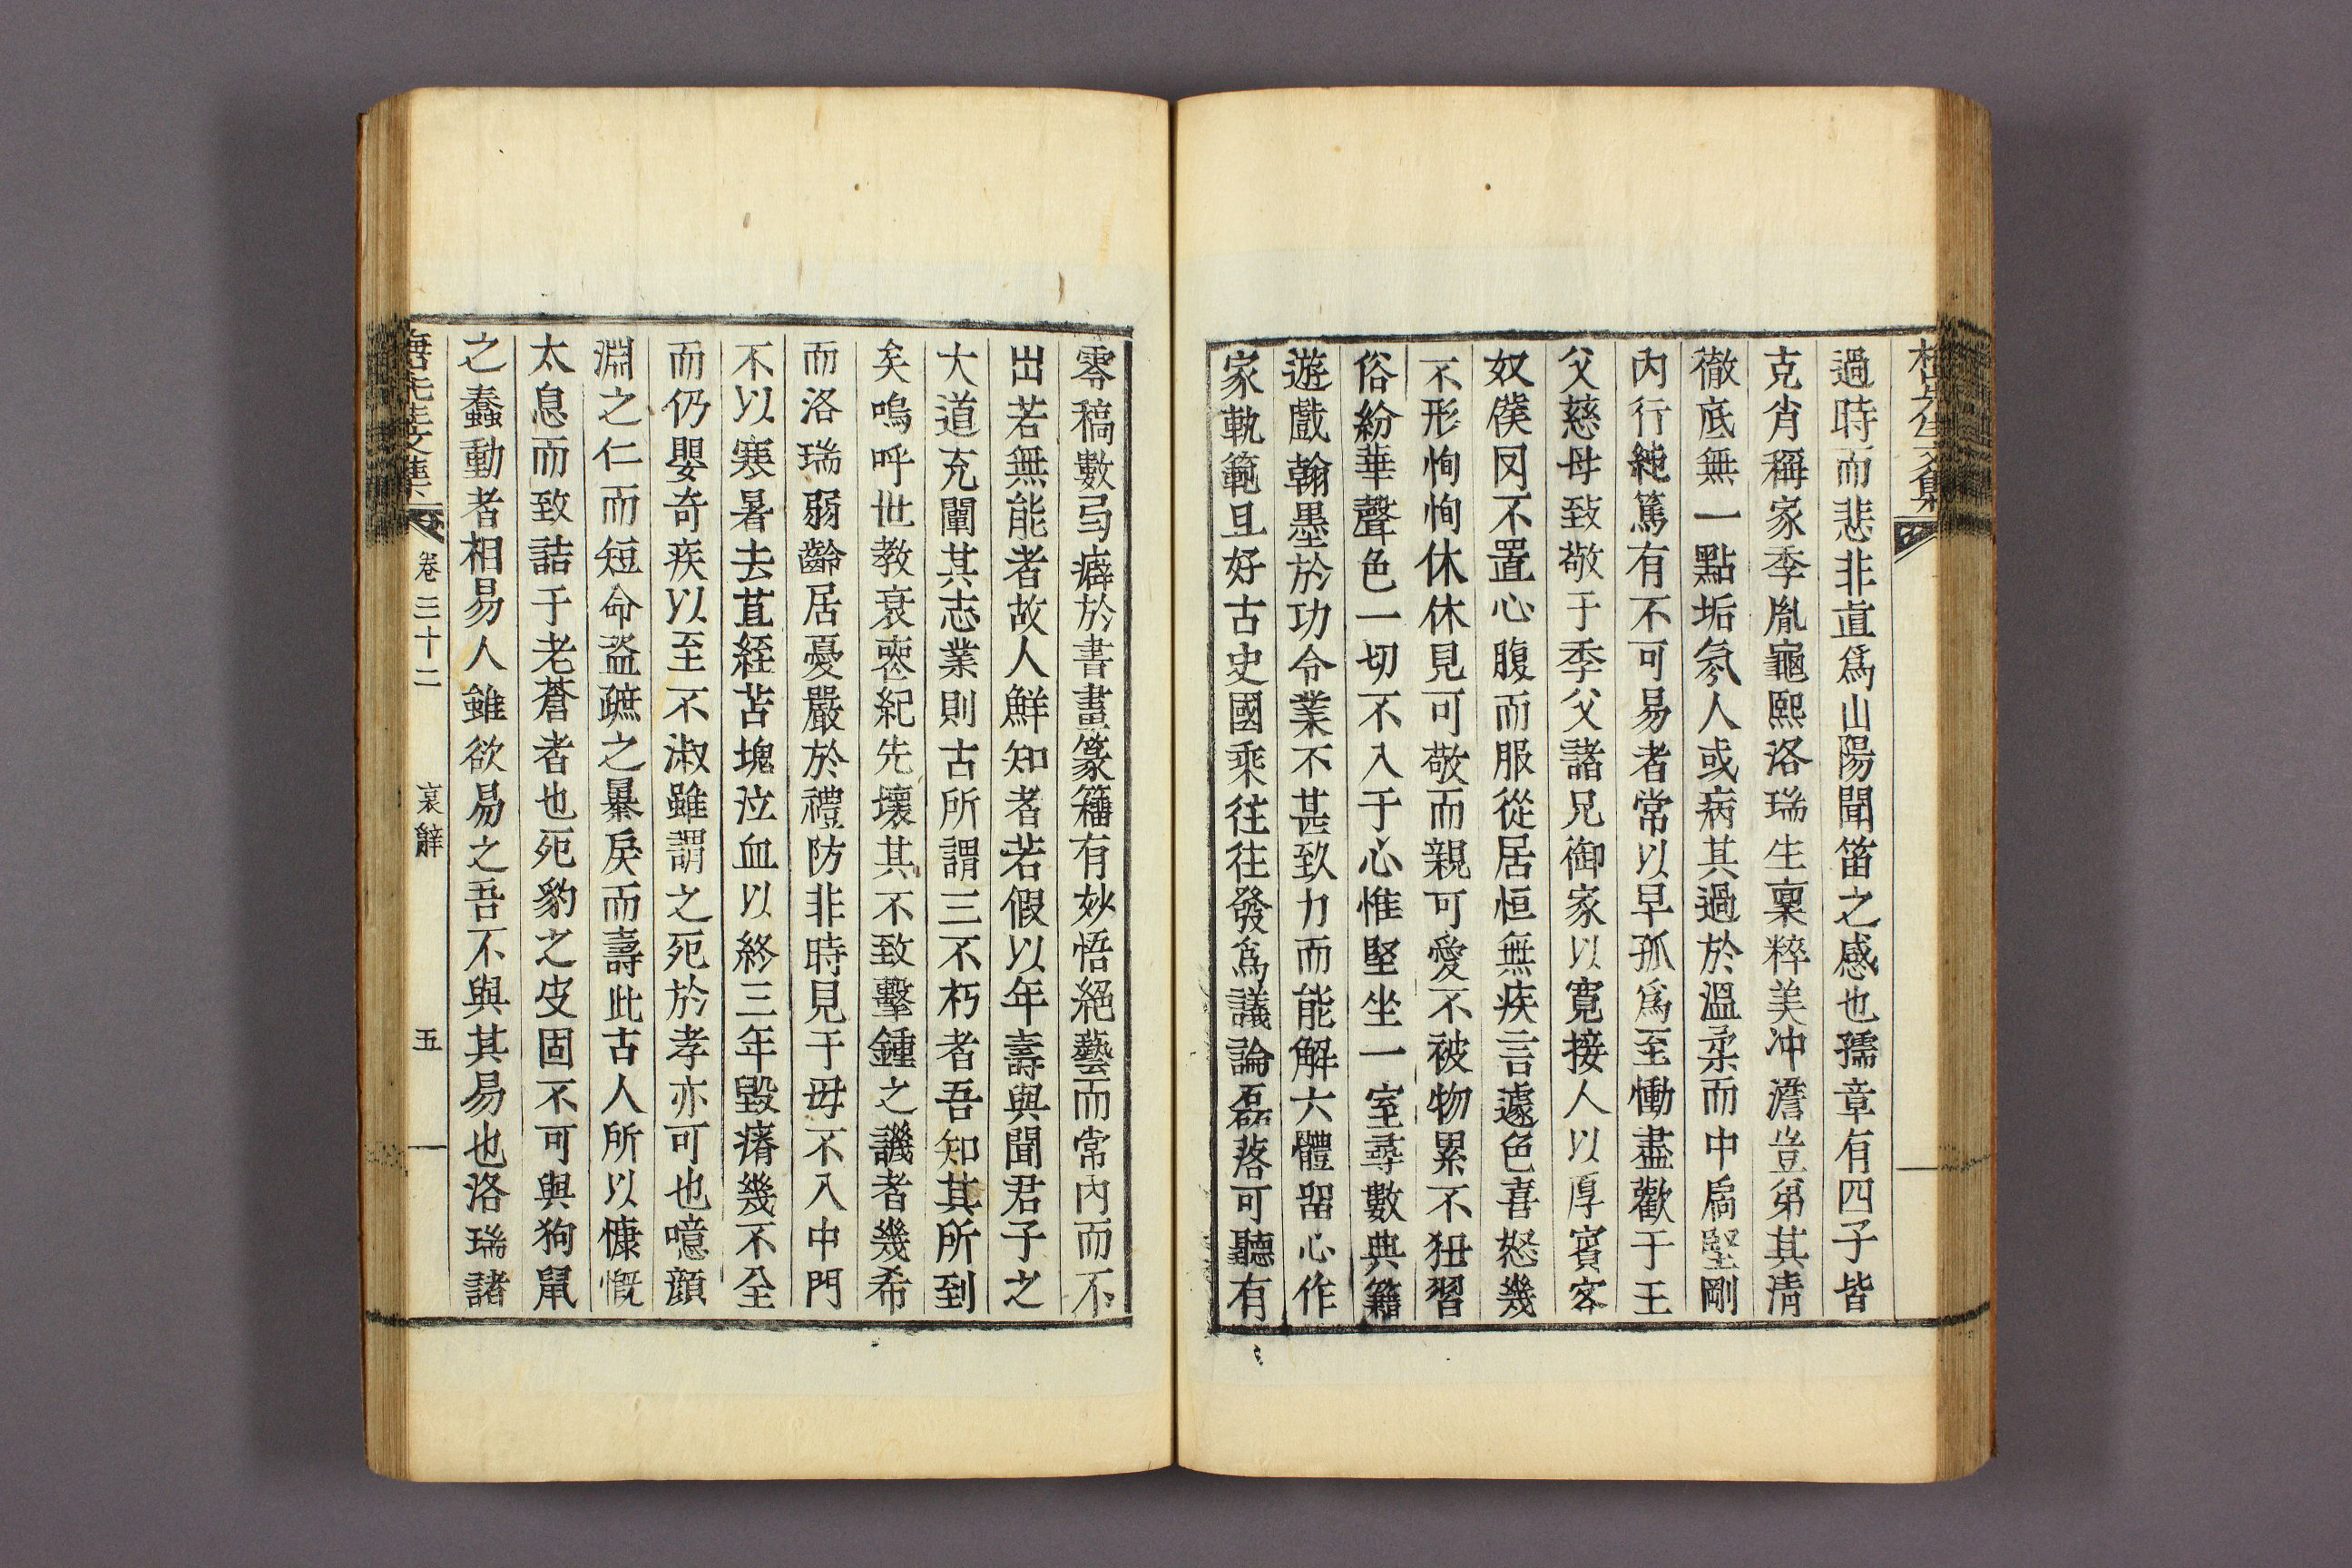 過時而悲非直爲山陽聞笛之感也孺章有四子皆
克肖稱家季胤龜熙洛瑞生稟粹美冲澹豈弟其淸
徹底無一點垢氛人或病其過於溫柔而中扃堅剛
內行純篤有不可易者常以早孤爲至慟盡歡于王
父慈母致敬于季父諸兄御家以寬接人以厚賓客
奴僕罔不置心腹而服從居恒無疾言遽色喜怒幾
不形恂恂休休見可敬而親可愛不被物累不狃習
俗紛華聲色一切不入于心惟堅坐一室尋數典籍
遊戲翰墨於功令業不甚致力而能解六體留心作
家軌範且好古史國乘往往發爲議論磊落可聽有
零稿數弓癖於書畫篆籒有妙悟絕藝而常內而不
出若無能者故人鮮知者若假以年壽與聞君子之
大道充闡其志業則古所謂三不朽者吾知其所到
矣嗚呼世敎衰喪紀先壞其不致鑿鍾之譏者幾希
而洛瑞弱齡居憂嚴於禮防非時見于母不入中門
不以寒暑去苴絰苫塊泣血以終三年毀瘠幾不全
而仍嬰奇疾以至不淑雖謂之死於孝亦可也噫顔
淵之仁而短命盜蹠之暴戾而壽此古人所以慷慨
太息而致詰于老蒼者也死豹之皮固不可與狗鼠
之蠢動者相易人雖欲易之吾不與其易也洛瑞諸
卷三十二 哀辭 五